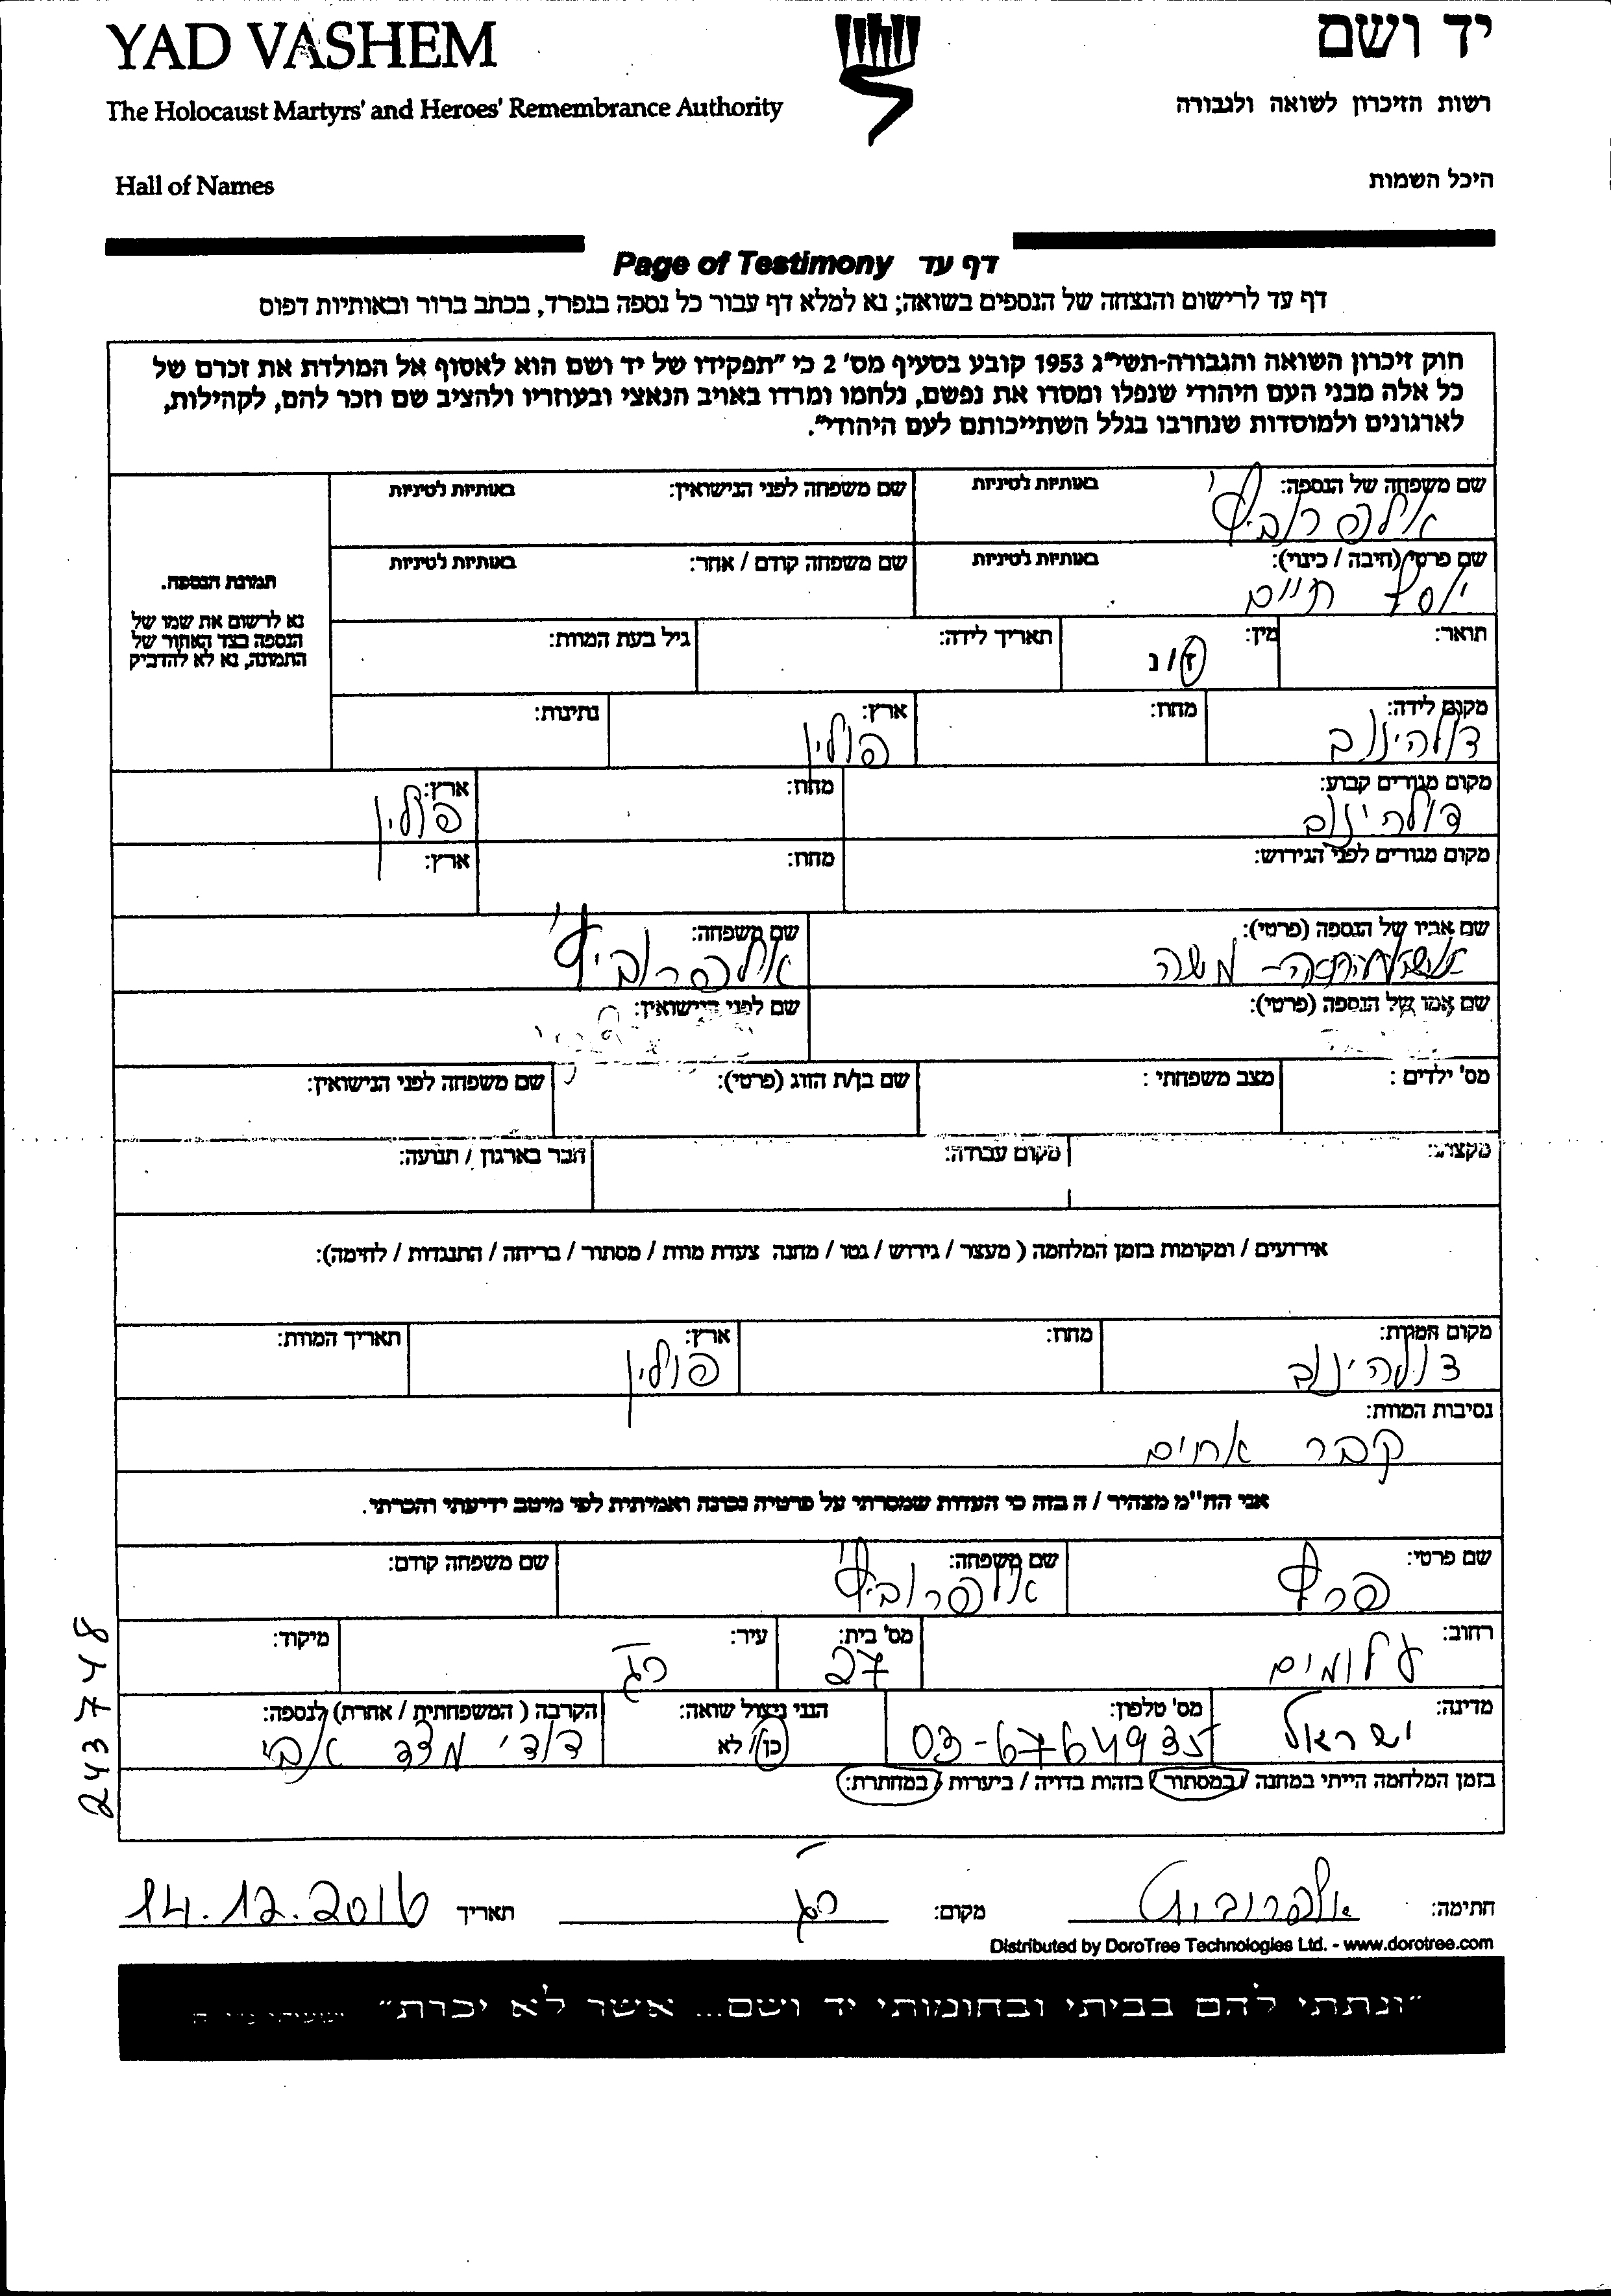 YAD VASHEM
יד ושם
The Holocaust Martyrs' and Heroes' Remembrance Authority
רשות הזיכרון לשואה ולגבורה
Hall of Names
היכל השמות
Page of Testimony דף עד
דף עד לרישום והנצחה של הנספים בשואה; נא למלא דף עבור כל נספה בנפרד, בכתב ברור ובאותיות דפוס
חוק זיכרון השואה והגבורה-תשי״ג 1953 קובע בסעיף מס' 2 כי ״תפקידו של יד ושם הוא לאסוף אל המולדת את זכרם של
כל אלה מבני העם היהודי שנפלו ומסרו את נפשם, נלחמו ומרדו באויב הנאצי ובעוזריו ולהציב שם וזכר להם, לקהילות,
לארגונים ולמוסדות שנחרבו בגלל השתייכותם לעם היהודי״.
שם משפחה של הנספה: באותיות לטיניות שם משפחה לפני הנישואין: באותיות לטיניות
אלפרוביץ'
שם פרטי (חיבה / כינוי): באותיות לטיניות שם משפחה קודם / אחר: באותיות לטיניות
יוסף חיים
תמונת הנספה.
נא לרשום את שמו של
הנספה בצד האחור של
התמונה, נא לא להדביק
תואר: מין: ז / נ תאריך לידה: גיל בעת המוות:
מקום לידה: מחוז: ארץ: נתינות:
דולהינוב פולין
מקום מגורים קבוע: מחוז: ארץ:
דולהינוב פולין
מקום מגורים לפני הגירוש: מחוז: ארץ:
שם אביו של הנספה (פרטי): שם משפחה:
משה אלפרוביץ'
שם אמו של הנספה (פרטי): שם לפני הנישואין:
מס' ילדים : מצב משפחתי : שם בן/ת הזוג (פרטי): שם משפחה לפני הנישואין:
מקצוע: מקום עבודה: חבר בארגון / תנועה:
אירועים / ומקומות בזמן המלחמה ( מעצר / גירוש / גטו / מחנה צעדת מוות / מסתור / בריחה / התנגדות / לחימה):
מקום המוות: מחוז: ארץ: תאריך המוות:
דולהינוב פולין
נסיבות המוות:
קבר אחים
אני הח"מ מצהיר / ה בזה כי העדות שמסרתי על פרטיה נכונה ואמיתית לפי מיטב ידיעתי והכרתי.
שם פרטי: שם משפחה: שם משפחה קודם:
פרץ אלפרוביץ'
רחוב: מס' בית: עיר: מיקוד:
עלומים 27 רג
מדינה: מס' טלפון: הנני ניצול שואה: הקרבה ( המשפחתית / אחרת) לנספה:
ישראל 03-6764935 כן / לא דודי מצד אבי
בזמן המלחמה הייתי במחנה / במסתור / בזהות בדויה / ביערות / במחתרת:
2437748
חתימה: אלפרוביץ מקום: רג תאריך 14.12.2016
Distributed by DoroTree Technologies Ltd. - www.dorotree.com
״ונתתי להם בביתי ובחומותי יד ושם... אשר לא יכרת״